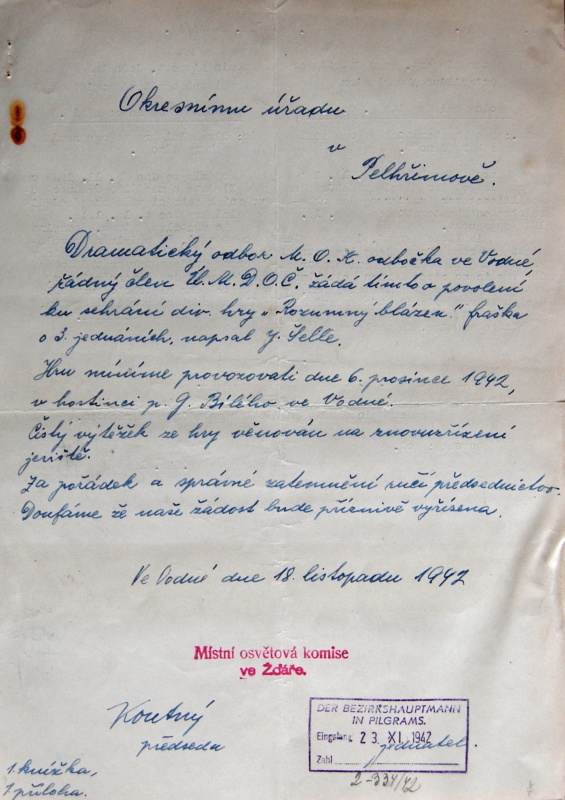 Okresnímu úřadu
v
Pelhřimově.
Dramatický odbor M. O. K. odbočka ve Vodné,
řádný člen Ú. M. D. O. Č. žádá tímto o povolení
ku sehrání div. hry „Rozumný blázen." fraška
o 3. jednáních, napsal J. Šelle.
Hru míníme provozovati dne 6. prosince 1942,
v hostinci p. G. Bílého ve Vodné.
Čistý výtěžek ze hry věnován na znovuzřízení
jeviště.
Za pořádek a správné zatemnění ručí předsednictvo.
Doufáme že naše žádost bude příznivě vyřízena.
Ve Vodné dne 18. listopadu 1942
Místní osvětová komise
ve Žďáře.
Koutný
předseda
jednatel.
DER BEZIRKSHAUPTMANN
IN PILGRAMS.
Eingelang 23. XI. 1942
Zahl
1. knížka,
1 příloha.